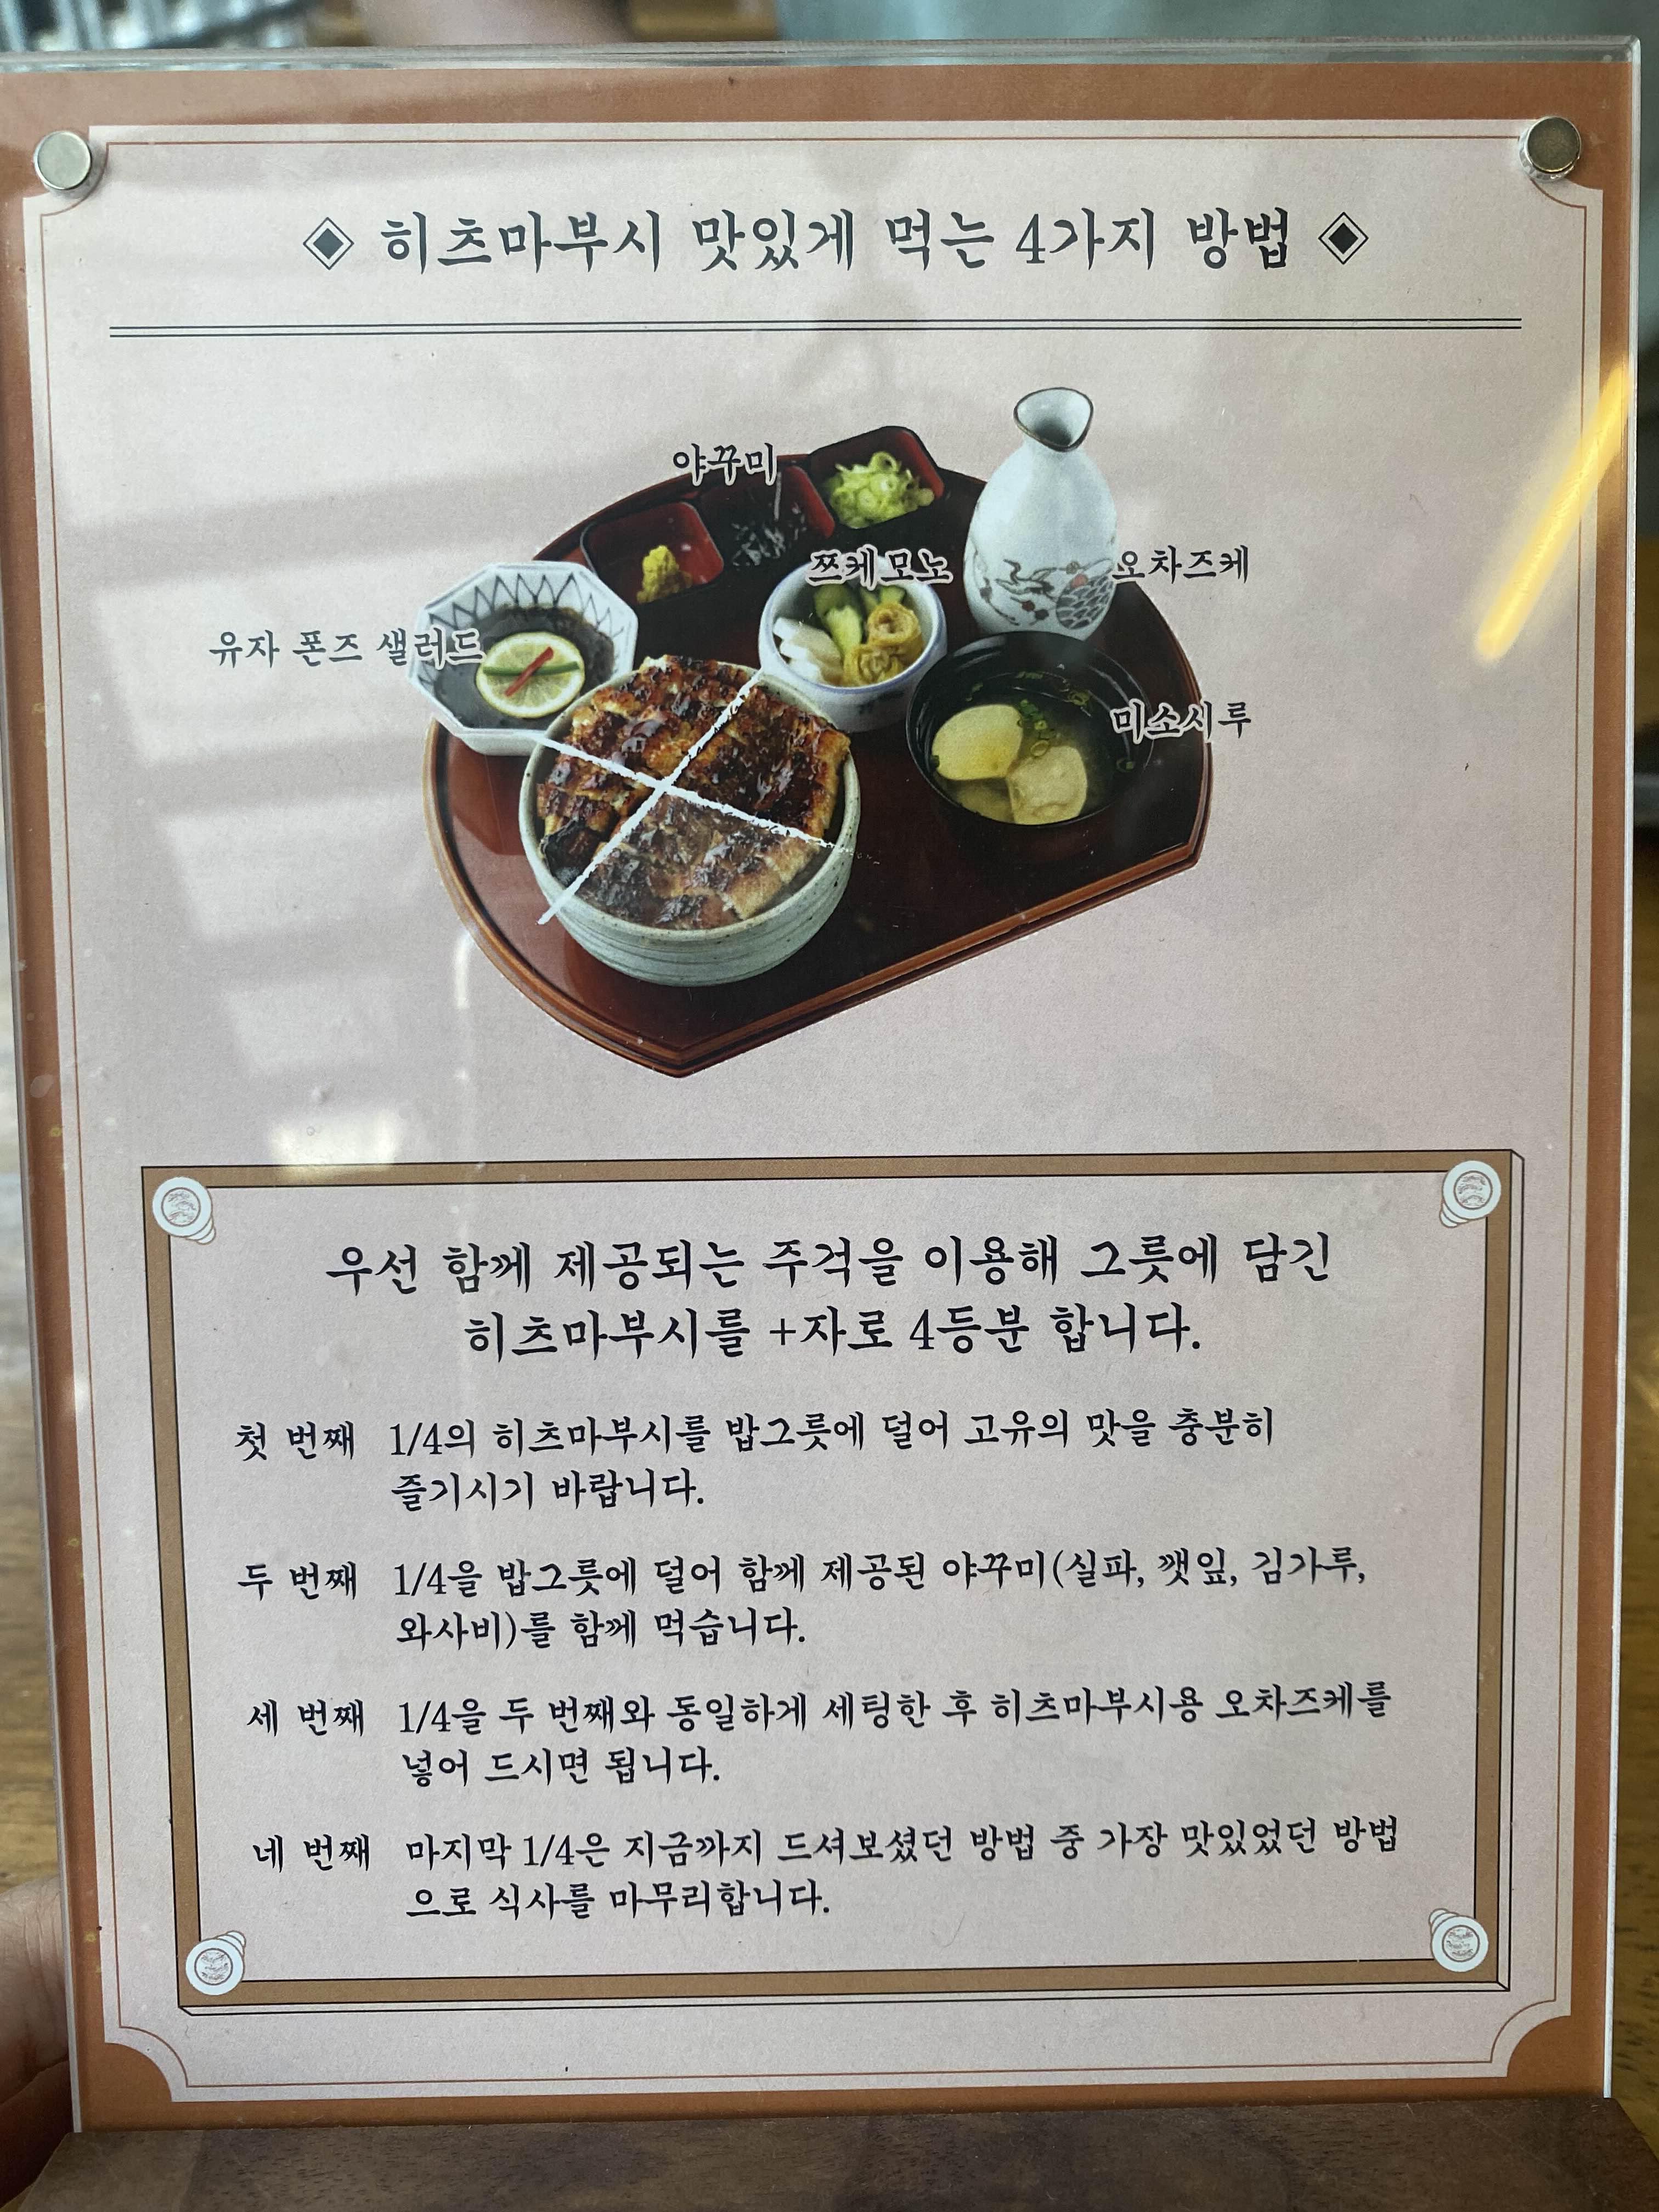 히츠마부시 맛있게 먹는 4가지 방법
야꾸미
쯔케모노
오차즈케
유자 폰즈 샐러드
미소시루
우선 함께 제공되는 주걱을 이용해 그릇에 담긴
히츠마부시를 +자로 4등분 합니다.
첫 번째 1/4의 히츠마부시를 밥그릇에 덜어 고유의 맛을 충분히
즐기시기 바랍니다.
두 번째 1/4을 밥그릇에 덜어 함께 제공된 야꾸미(실파, 깻잎, 김가루,
와사비)를 함께 먹습니다.
세 번째 1/4을 두 번째와 동일하게 세팅한 후 히츠마부시용 오차즈케를
넣어 드시면 됩니다.
네 번째 마지막 1/4은 지금까지 드셔보셨던 방법 중 가장 맛있었던 방법
으로 식사를 마무리합니다.